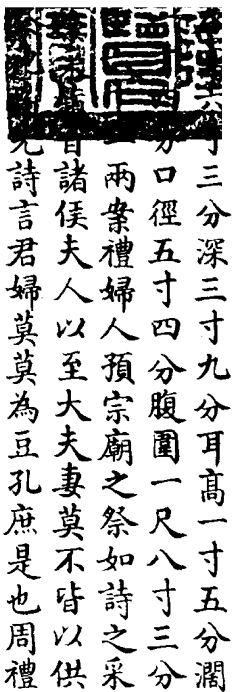 寸三分深三寸九分耳高一寸五分濶
分口徑五寸四分腹圍一尺八寸三分
兩案禮婦人預宗廟之祭如詩之采
皆諸侯夫人以至大夫妻莫不皆以供
詩言君婦莫莫為豆孔庶是也周禮